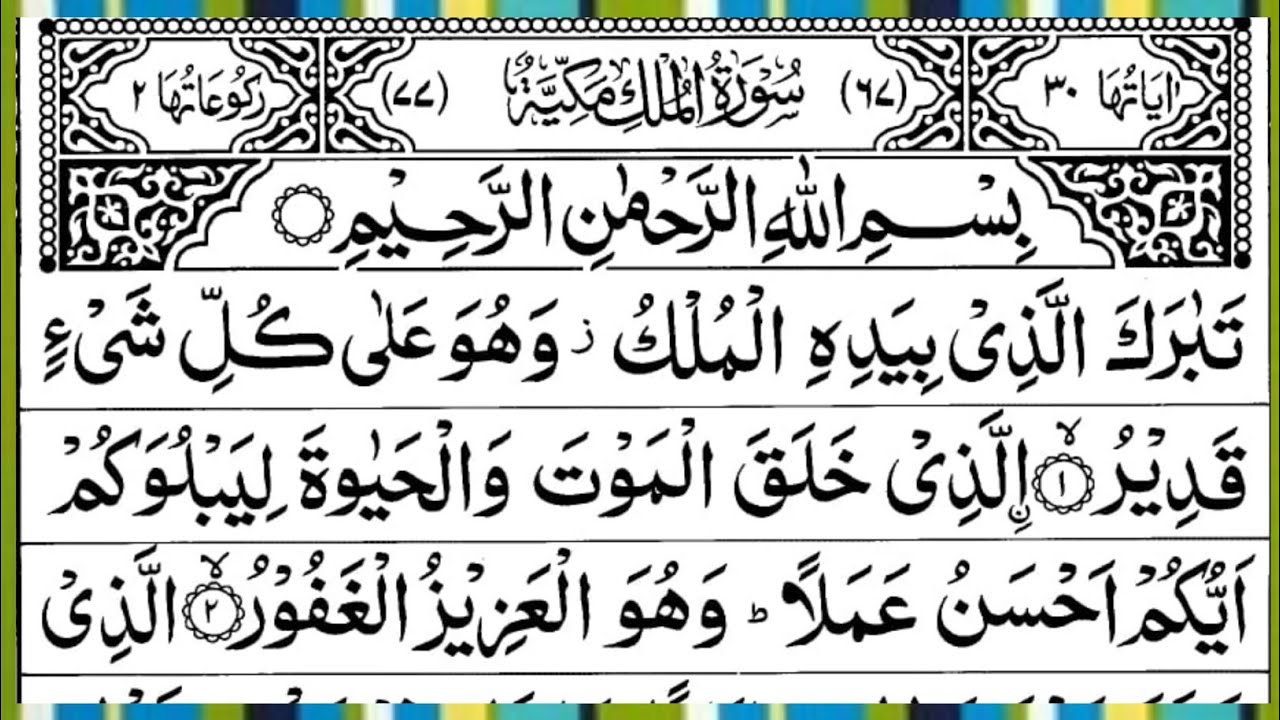 اٰيَاتُهَا ٣٠ (٦٧) سُوْرَةُ الْمُلْكِ مَكِّيَّةٌ (٧٧) رُكُوْعَاتُهَا ٢
بِسْمِ اللهِ الرَّحْمٰنِ الرَّحِيْمِ
تَبٰرَكَ الَّذِیْ بِيَدِهِ الْمُلْكُ ز وَهُوَ عَلٰى كُلِّ شَیْءٍ
قَدِيْرُ ۙ‏﴿١﴾ اِ۟لَّذِیْ خَلَقَ الْمَوْتَ وَالْحَيٰوةَ لِيَبْلُوَكُمْ
اَيُّكُمْ اَحْسَنُ عَمَلًا ؕ وَهُوَ الْعَزِيْزُ الْغَفُوْرُ ۙ‏﴿٢﴾ الَّذِیْ